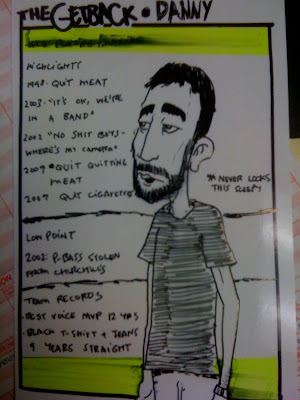 THE GETBACK • DANNY
HIGHLIGHTS
1998- QUIT MEAT
2003- "IT'S OK, WE'RE
IN A BAND"
2002 "NO SHIT BOYS-
WHERE'S MY CAMERA"
2009 "QUIT QUITTING
MEAT
2007 QUIT CIGARETTE
*NEVER LOOKS
THIS SLEEPY
LOW POINT
2002: P-BASS STOLEN
FROM CHURCHILLS
TEAM RECORDS
-BEST VOICE MVP 12 YRS
-BLACK T-SHIRT + JEANS
9 YEARS STRAIGHT